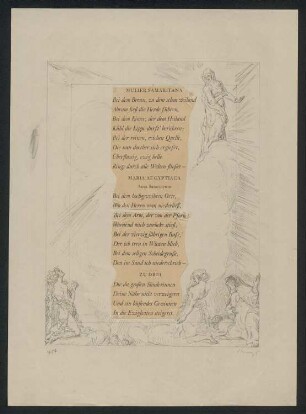 MULIER SAMARITANA
Bei dem Bronn, zu dem schon weiland
Abram liess die Herde führen,
Bei dem Eimer, der dem Heiland
Kühl die Lippe durft' berühren;
Bei der reinen, reichen Quelle,
Die nun dorther sich ergiesset,
Überflüssig, ewig helle
Rings durch alle Welten fliesset –
MARIA AEGYPTIACA
Bei dem hochgeweihten Orte,
Wo den Herren man niederliess,
Bei dem Arm, der von der Pforte
Warnend mich zurücke stiess,
Bei der vierzigjährigen Busse,
Der ich treu in Wüsten blieb,
Bei dem seligen Scheidegrusse,
Den im Sand ich niederschrieb –
ZU DREI
Die du grossen Sünderinnen
Deine Nähe nicht verweigerst
Und ein büssendes Gewinnen
In die Ewigkeiten steigerst